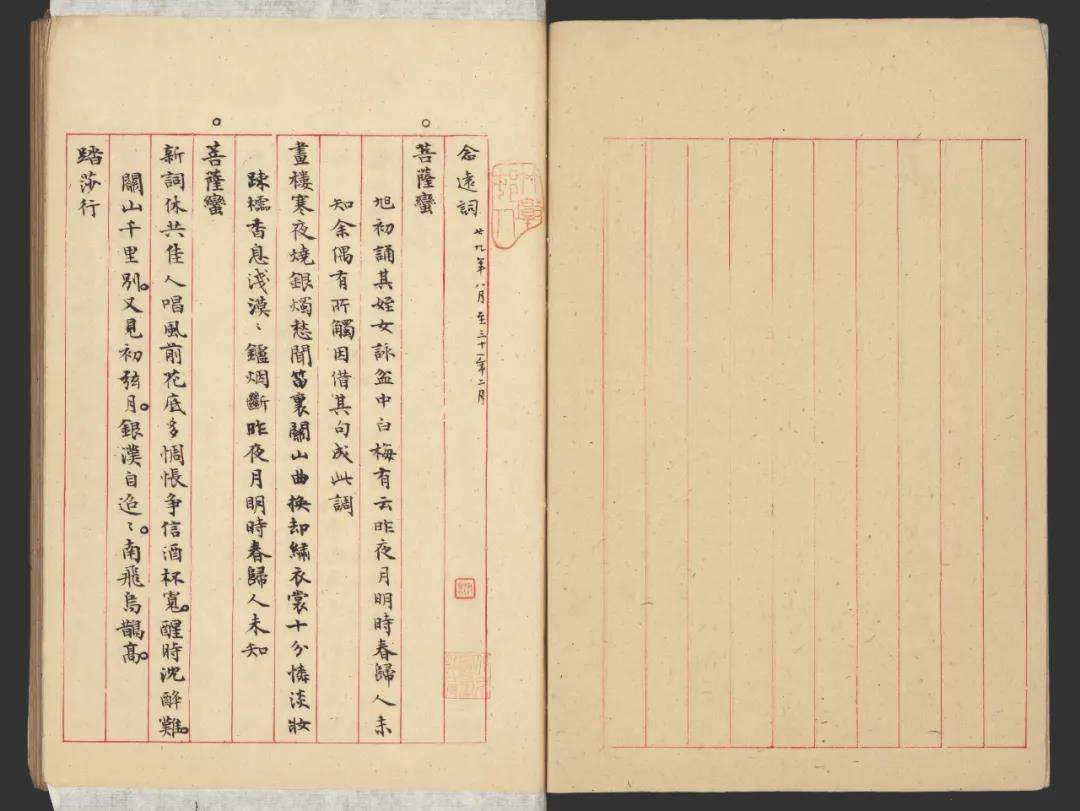 念遠詞 廿九年八月至三十一年二月
菩薩蠻
旭初誦其姪女詠盆中白梅有云昨夜月明時春歸人未
知余偶有所觸因借其句成此調
畫樓寒夜燒銀燭愁聞笛裏關山曲換却繡衣裳十分憐淡妝
疎櫺香息淺漠〻鑪烟斷昨夜月明時春歸人未知
菩薩蠻
新詞休共佳人唱風前花底多惆悵爭信酒杯寬。醒時沈醉難。
關山千里別。又見初弦月。銀漢自迢〻。南飛烏鵲高。
踏莎行